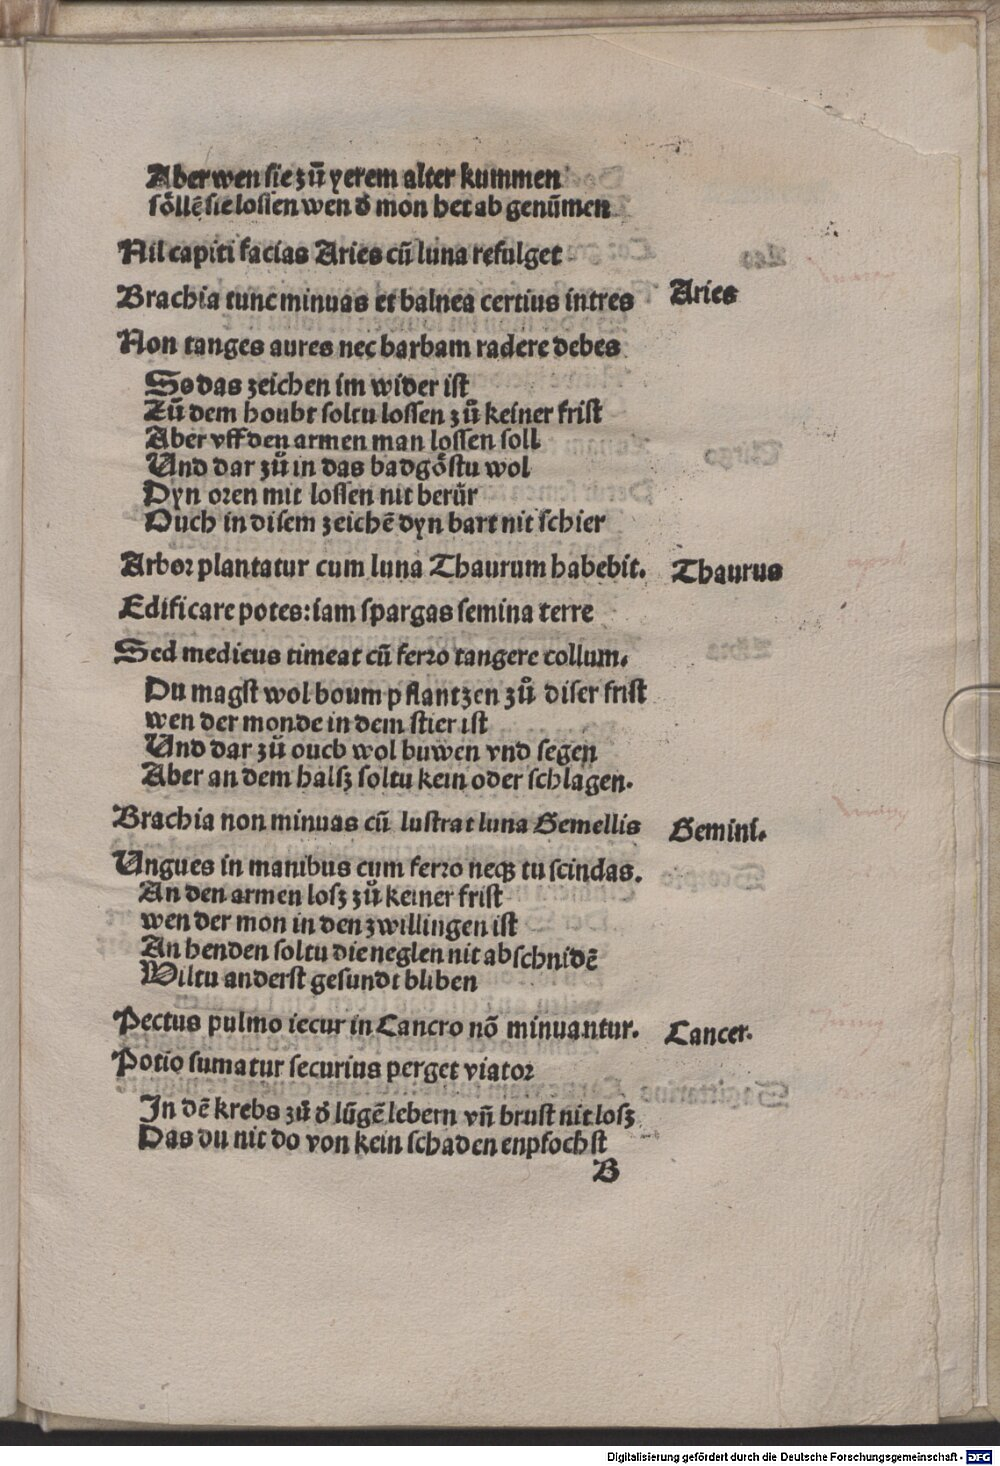 Aber wen sie zů yerem alter kummen
söllē sie lossen wen d̄ mon het ab genūmen
Nil capiti facias Aries cū luna refulget
Brachia tunc minuas et balnea certius intres
Aries
Non tanges aures nec barbam radere debes
So das zeichen im wider ist
Zů dem houbt soltu lossen zů keiner frist
Aber vff den armen man lossen soll
Und dar zů in das bad göstu wol
Dyn oren mit lossen nit berůr
Ouch in disem zeichē dyn bart nit schier
Arbor plantatur cum luna Thaurum habebit.
Thaurus
Edificare potes: iam spargas semina terre
Sed medicus timeat cū ferro tangere collum.
Du magst wol boum pflantzen zů diser frist
wen der monde in dem stier ist
Und dar zů ouch wol buwen vnd segen
Aber an dem halsz soltu kein oder schlagen.
Brachia non minuas cū lustrat luna Gemellis
Gemini.
Ungues in manibus cum ferro neqꝫ tu scindas.
An den armen losz zů keiner frist
wen der mon in den zwillingen ist
An henden soltu die neglen nit abschnidē
Wiltu anderst gesundt bliben
Pectus pulmo iecur in Cancro nō minuantur.
Cancer.
Potio sumatur securius perget viator
In dē krebs zů d̄ lūgē lebern vn̄ brust nit losz
Das du nit do von kein schaden enpfochst
B
Digitalisierung gefördert durch die Deutsche Forschungsgemeinschaft - DFG